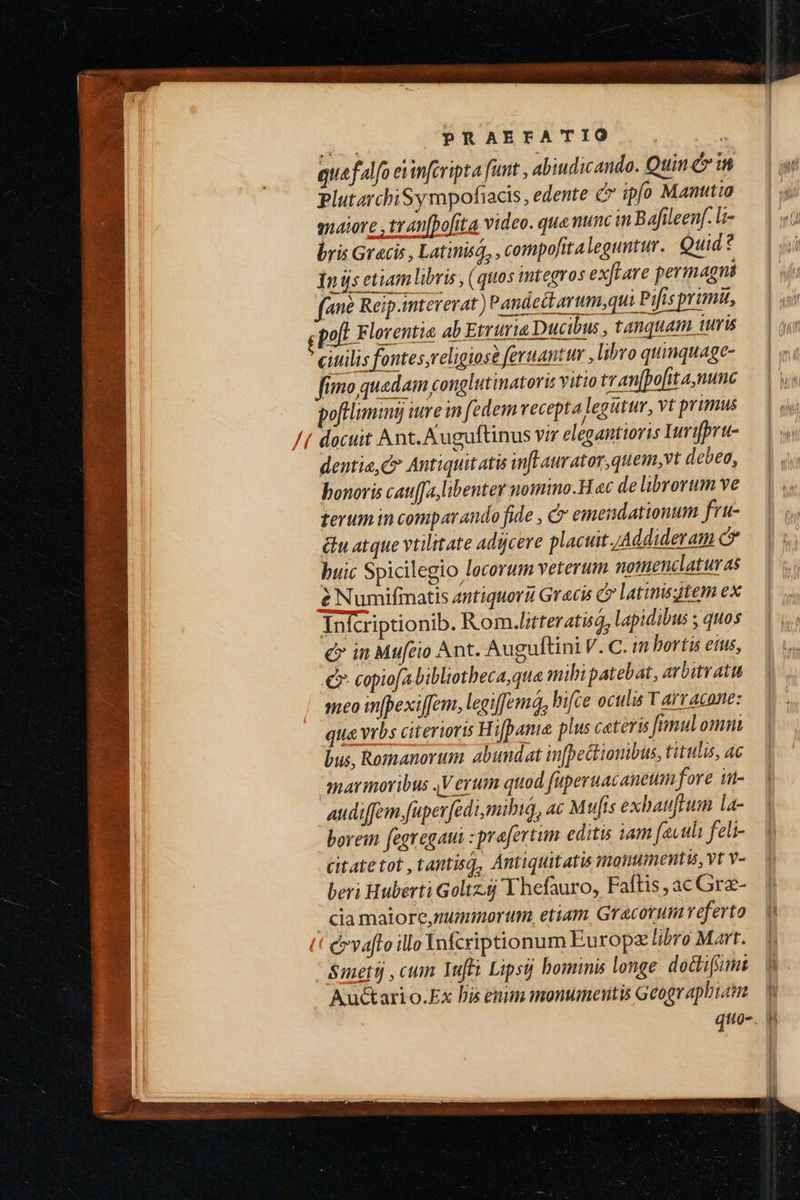 PRAEFATIO
quæ falſo ei inſcripta ſunt, abiudicando. Quin & in
PlutarchiSympoſiacis, edente & ipſo Manutio
maiore, tranſpoſita video. quæ nunc in Baſileenſ. li-
bris Græcis, Latinisq́, compoſita leguntur. Quid?
In ijs etiam libris, (quos integros exſtare permagni
ſanè Reip. intererat) Pandectarum, qui Piſis primũ,
poſt Florentiæ ab Etruriæ Ducibus, tanquam iuris
ciuilis fontes, religiosè ſeruantur, libro quinquage-
ſimo quædam conglutinatoris vitio tranſpoſita, nunc
poſtliminij iure in ſedem recepta legũtur, vt primus
docuit Ant. Auguſtinus vir elegantioris Iuriſpru-
dentiæ, & Antiquitatis inſtaurator, quem, vt debeo,
honoris cauſſa, libenter nomino. Hæc de librorum ve
terum in comparando fide, & emendationum fru-
ctu atque vtilitate adijcere placuit. Addideram &
huic Spicilegio locorum veterum nomenclaturas
è Numiſmatis antiquorũ Græcis & latinis, item ex
Inſcriptionib. Rom. litteratisq́, lapidibus; quos
& in Muſeio Ant. Auguſtini V. C. in hortis eius,
& copioſa bibliotheca, quæ mihi patebat, arbitratu
meo inſpexiſſem, legiſſemq́, hiſce oculis Tarracone:
quæ vrbs citerioris Hiſpaniæ plus cæteris ſimul omni
bus, Romanorum abundat inſpectionibus, titulis, ac
marmoribus. Verum quod ſuperuacaneum fore in-
audiſſem, ſuperſedi, mihiq́, ac Muſis exhauſtum la-
borem ſegregaui: præſertim editis iam ſæculi feli-
citate tot, tantisq́, Antiquitatis monumentis, vt v-
beri Huberti Goltzij Theſauro, Faſtis, ac Græ-
cia maiore, nummorum etiam Græcorum referto
& vaſto illo Inſcriptionum Europæ libro Mart.
Smetij, cum Iuſti Lipsij hominis longe doctiſsimi
Auctario. Ex his enim monumentis Geographiam
quo-